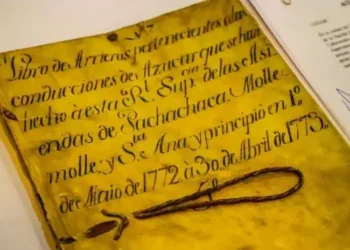 Libro de Arrieros pertenecientes a las
conducciones de Azucar que se han
hecho à esta Rl. Supcia. de las Asi
endas de Pachachaca, Molle
molle, y Sta. Ana y principio en 1o.
de Maio de 1772 à 30 de Abril de 1773